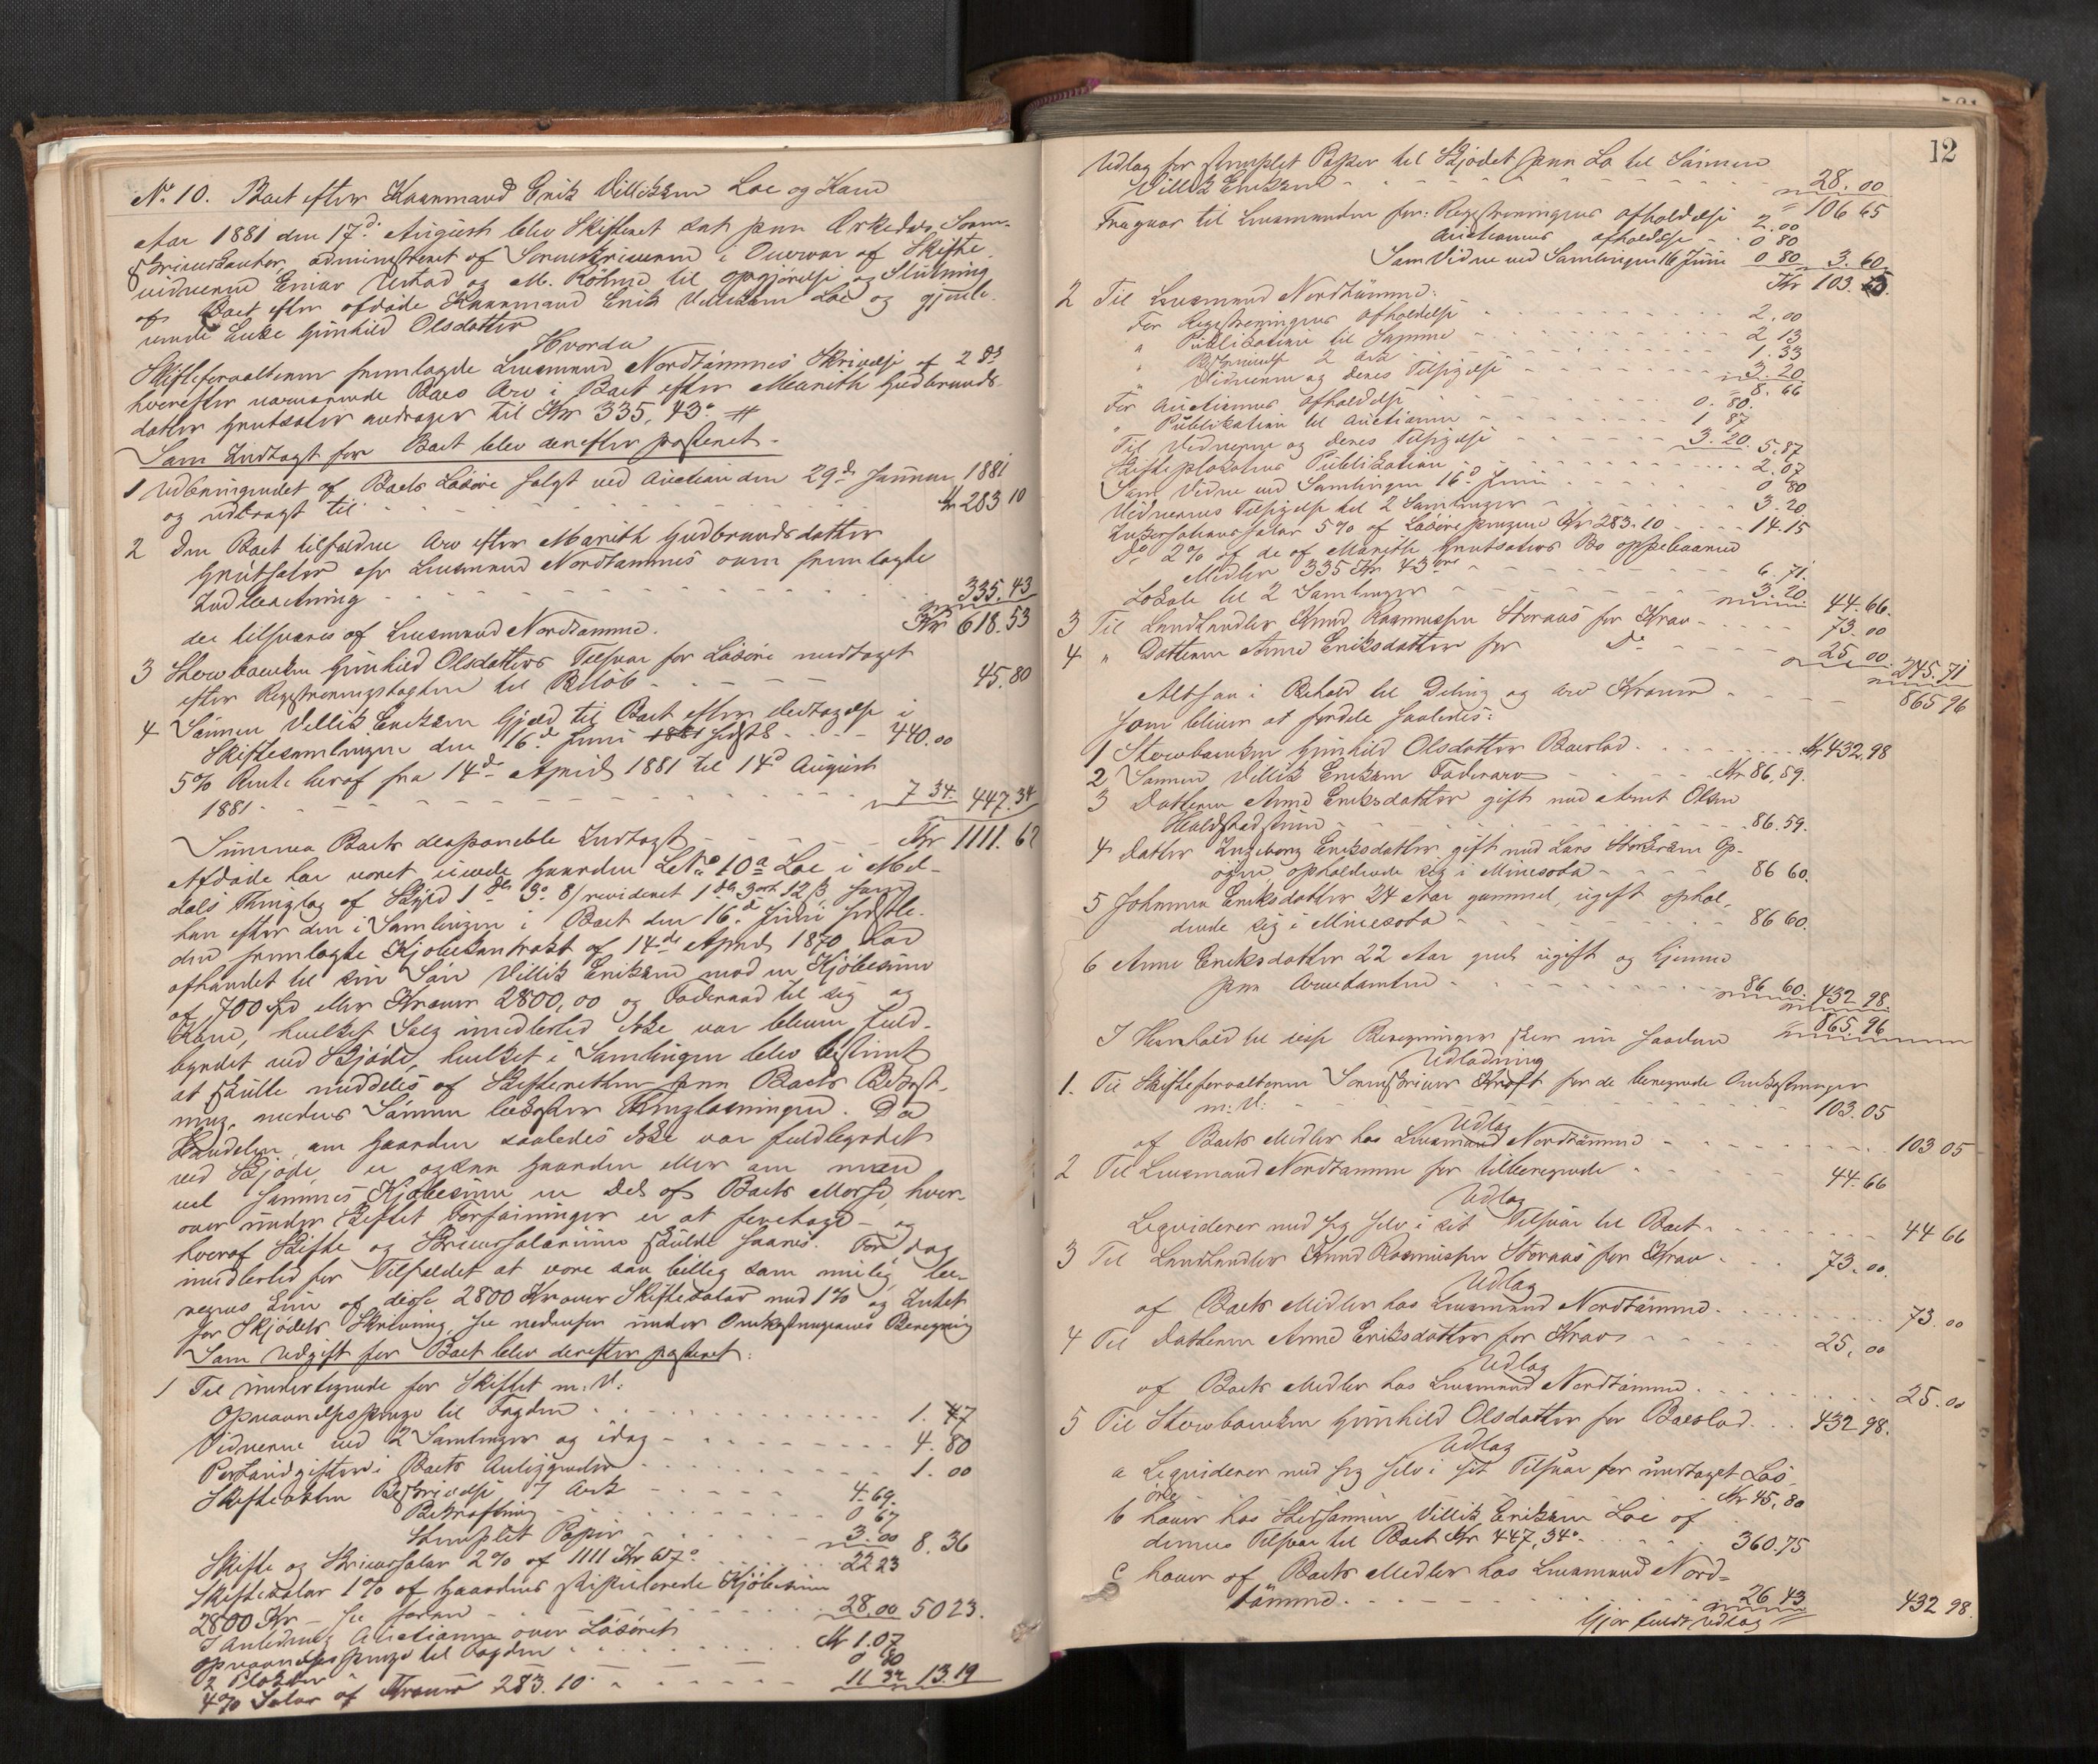 No 10. Boet efter Kaarmand Erik Villiksen Loe og Kone
Aar 1881 den 17d August blev Skiftenet sat paa Ørkedals Soren-
skriverkontor, administreret af Sorenskriveren i Overvær af Skifte-
vidnerne Einar Ustad og M. Röhme til Opgjørelse og Slutning
af Boet efter afdøde Kaarmand Erik Villiksen Loe og gjenle-
vende Enke Gunhild Olsdatter
Hvorda
Skifteforvalteren fremlagde Lensmand Nordtømmes Skrivelse af 2 ds
hvorefter nærværende Boes Arv i Boet efter Marith Gudbrands-
datter Grutsæter andrager til Kr 335,43o #
Som Indtægt for Boet blev derefter posteret.
1 Udbringendet af Boets Løsøre solgt ved Auction den 29d Januar 1881
og udbragt til Kr 283 10
2 Den Boet tilfaldne Arv efter Marith Gudbrandsdatter
Grutsæter efr Lensmand Nordtømmes oven fremlagte
Indberetning 335.43
der tilsvares af Lensmand Nordtømme. Kr 618.53
3 Stervboenken Gunhild Olsdatters Tilsvar for Løsøre modtaget
efter Registreringstaxten til Beløb 45.80
4 Sønnen Villik Eriksens Gjæld til Boet efter Vedtagelse i
Skiftesamlingen den 16d Juni 1881 sidstl 440.00
5% Rente heraf fra 14d April 1881 til 14d August
1881 7 34. 447.34
Summa Boets disponible Indtægt Kr 1111.67
Afdøde har været eiende Gaarden LNo 10a Loe i Mel-
dals Thinglag af Skyld 1 Dlr 3o 8/ revideret 1 Dlr 3 ort 12 β, som
han efter den i Samlingen i Boet den 16d Juni sidstl.
den fremlagte Kjøbekontrakt af 14de April 1870 har
afhændet til sin Søn Villik Eriksen mod en Kjøbesum
af 700 Spd eller Kroner 2800,00 og Føderaad til sig og
Kone, hvilket Salg imidlertid ikke var bleven fuld-
byrdet ved Skjøde, hvilket i Samlingen blev bestemt
at skulle meddeles af Skifteretten paa Boets Bekost-
ning, medens Sønnen bekoster Thinglæsningen. Da
Handelen om Gaarden saaledes ikke var fuldbyrdet
ved Skjøde, er ogsaa Gaarden eller om man
vil sammes Kjøbesum en Del af Boets Masse, hver-
over under Skiftet Forføininger er at foretage – og
hvoraf Skifte og Skriversalarium skulde haves. For dog
imidlertid for Tilfældet at være saa billig som mulig be-
regnes kun af disse 2800 Kroner Skiftesalær med 1% og Intet
for Skjødets Skrivning, se nedenfor under Omkostningernes Beregning
Som Udgift for Boet blev derefter posteret:
1 Til undertegnede for Skiftet m. V:
Opnævnelsespenge til Fogden 1.47
Vidnerne ved 2 Samlinger og idag 4.80
Portoudgifter i Boets Anliggender 1.00
Skifteakten Beskrivelse 7 Ark 4.69
Bekræftning 0 67
stemplet Papir 3.00 8.36
Skifte og Skriversalær 2% af 1111 Kr 67o 22 23
Skiftesalær 1% af Gaardens stipulerede Kjøbesum
2800 Kr – se foran 28.00 50 23.
I Anledning Auctionen over Løsøret
Opnævnelsespenge til Fogden Kr 1.07
2 Plakater 0 80
4% Salær af Kroner 283.10 11 32 13.19
12
Udlæg for stemplet Papir til Skjødet paa Lo til Sønnen
Villik Eriksen 28.00
106 65
Fragaar til Lensmanden for: Registreringens Afholdelse 2.00
Auctionens Afholdelse 0 80
Som Vidne ved Samlingen 16 Juni 0 80 3.60.
Kr 103.05.
2 Til Lensmand Nordtømme:
For Registreringens Afholdelse 2.00
" Publikation til Samme 2 13
" Beskrivelse 2 Ark 1.33
" Vidnerne og deres Tilsigelse 3.20
8.66
For Auctionens Afholdelse 0.80.
" Publikation til Auctionen 1 87
Til Vidnerne og deres Tilsigelse 3.20. 5.87
Skifteplakatens Publikation 2.07
Som Vidne ved Samlingen 16d Juni 0 80
Vidnernes Tilsigelse til 2 Samlinger 3.20.
Inkassationssalær 5% af Løsørepengene Kr 283.10 14.15
Do 2% af de af Marith Grutsæters Bo oppebaarne
Midler 335 Kr 43 øre 6.71.
Lokale til 2 Samlinger 3.20 44.66.
3 Til Landhandler Knud Rasmussen Storaas for Krav 73.00
4 " Datteren Anne Eriksdatter for Do 25.00. 245.71
Altsaa i Behold til Deling og Arv Kroner 865 96
som bliver at fordele saaledes:
1 Stervboenken Gunhild Olsdatter Boeslod Kr 432.98
2 Sønnen Villik Eriksen Faderarv Kr 86.59.
3 Datteren Anne Eriksdatter gift med Arnt Olsen
86.59.
4 Datter Ingeborg Eriksdatter gift med Lars
opholdende sig i Minesota 86 60.
5 Johanna Eriksdatter 24 Aar gammel, ugift ophol-
dende sig i Minesota 86 60.
6 Anne Eriksdatter 22 Aar gml. ugift og hjemme
paa Arvetomten 86 60. 432 98.
865.96
I Henhold til disse Beregninger skeer nu saadan
Udlodning
1. Til Skifteforvalteren Sorenskriver Kroft for de beregnede Omkostninger
m: V: 103.05
Udlæg
af Boets Midler hos Lensmand Nordtømme 103 05
2 Til Lensmand Nordtømme for tilberegnede 44.66
Udlæg
Liqviderer med sig selv i sit Tilsvar til Boet 44 66
3 Til Landhandler Knud Rasmussen Storaas for Krav 73.00.
Udlæg
af Boets Midler hos Lensmand Nordtømme. 73.00
4 Til Datteren Anne Eriksdatter for Krav 25.00
Udlæg
af Boets Midler hos Lensmand Nordtømme 25.00
5 Til Stervboenken Gunhild Olsdatter for Boeslod 432 98.
Udlæg
a Liqviderer med sig selv i sit Tilsvar for modtaget Løs-
øre Kr 45.80
b haver hos Sønnen Villik Eriksen Loe af
dennes Tilsvar til Boet Kr 447,34o 360.75
c haver af Boets Midler hos Lensmand Nord-
tømme. 26 43 432 98.
Gjør fuldt Udlæg